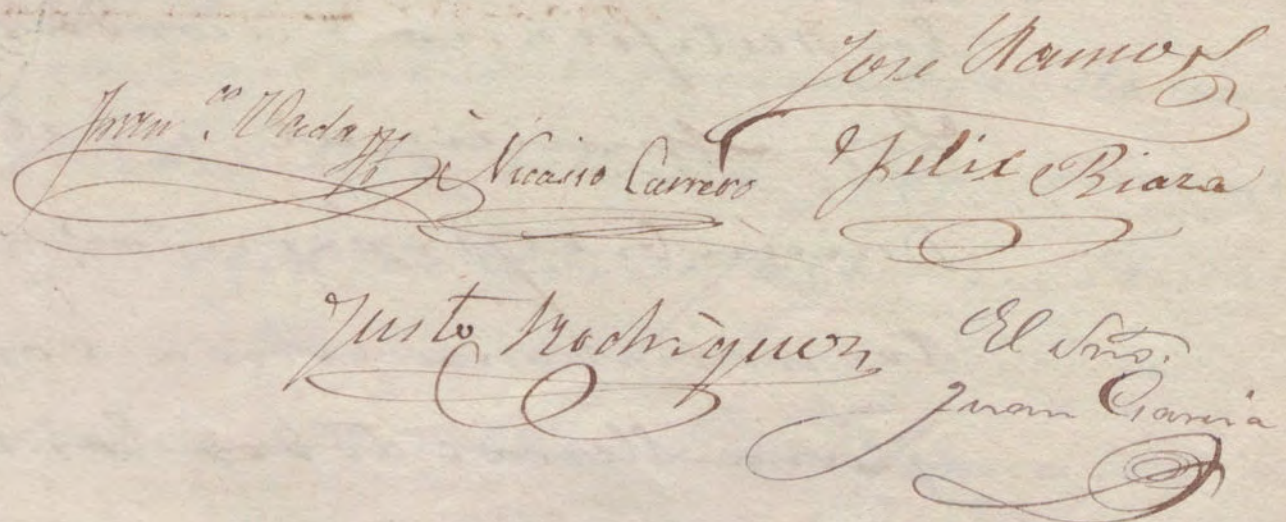 José Ramos
Fran.co Nicasio Carrero Felix Riaza
Justo Rodriguez El Srio.
Juan Garcia